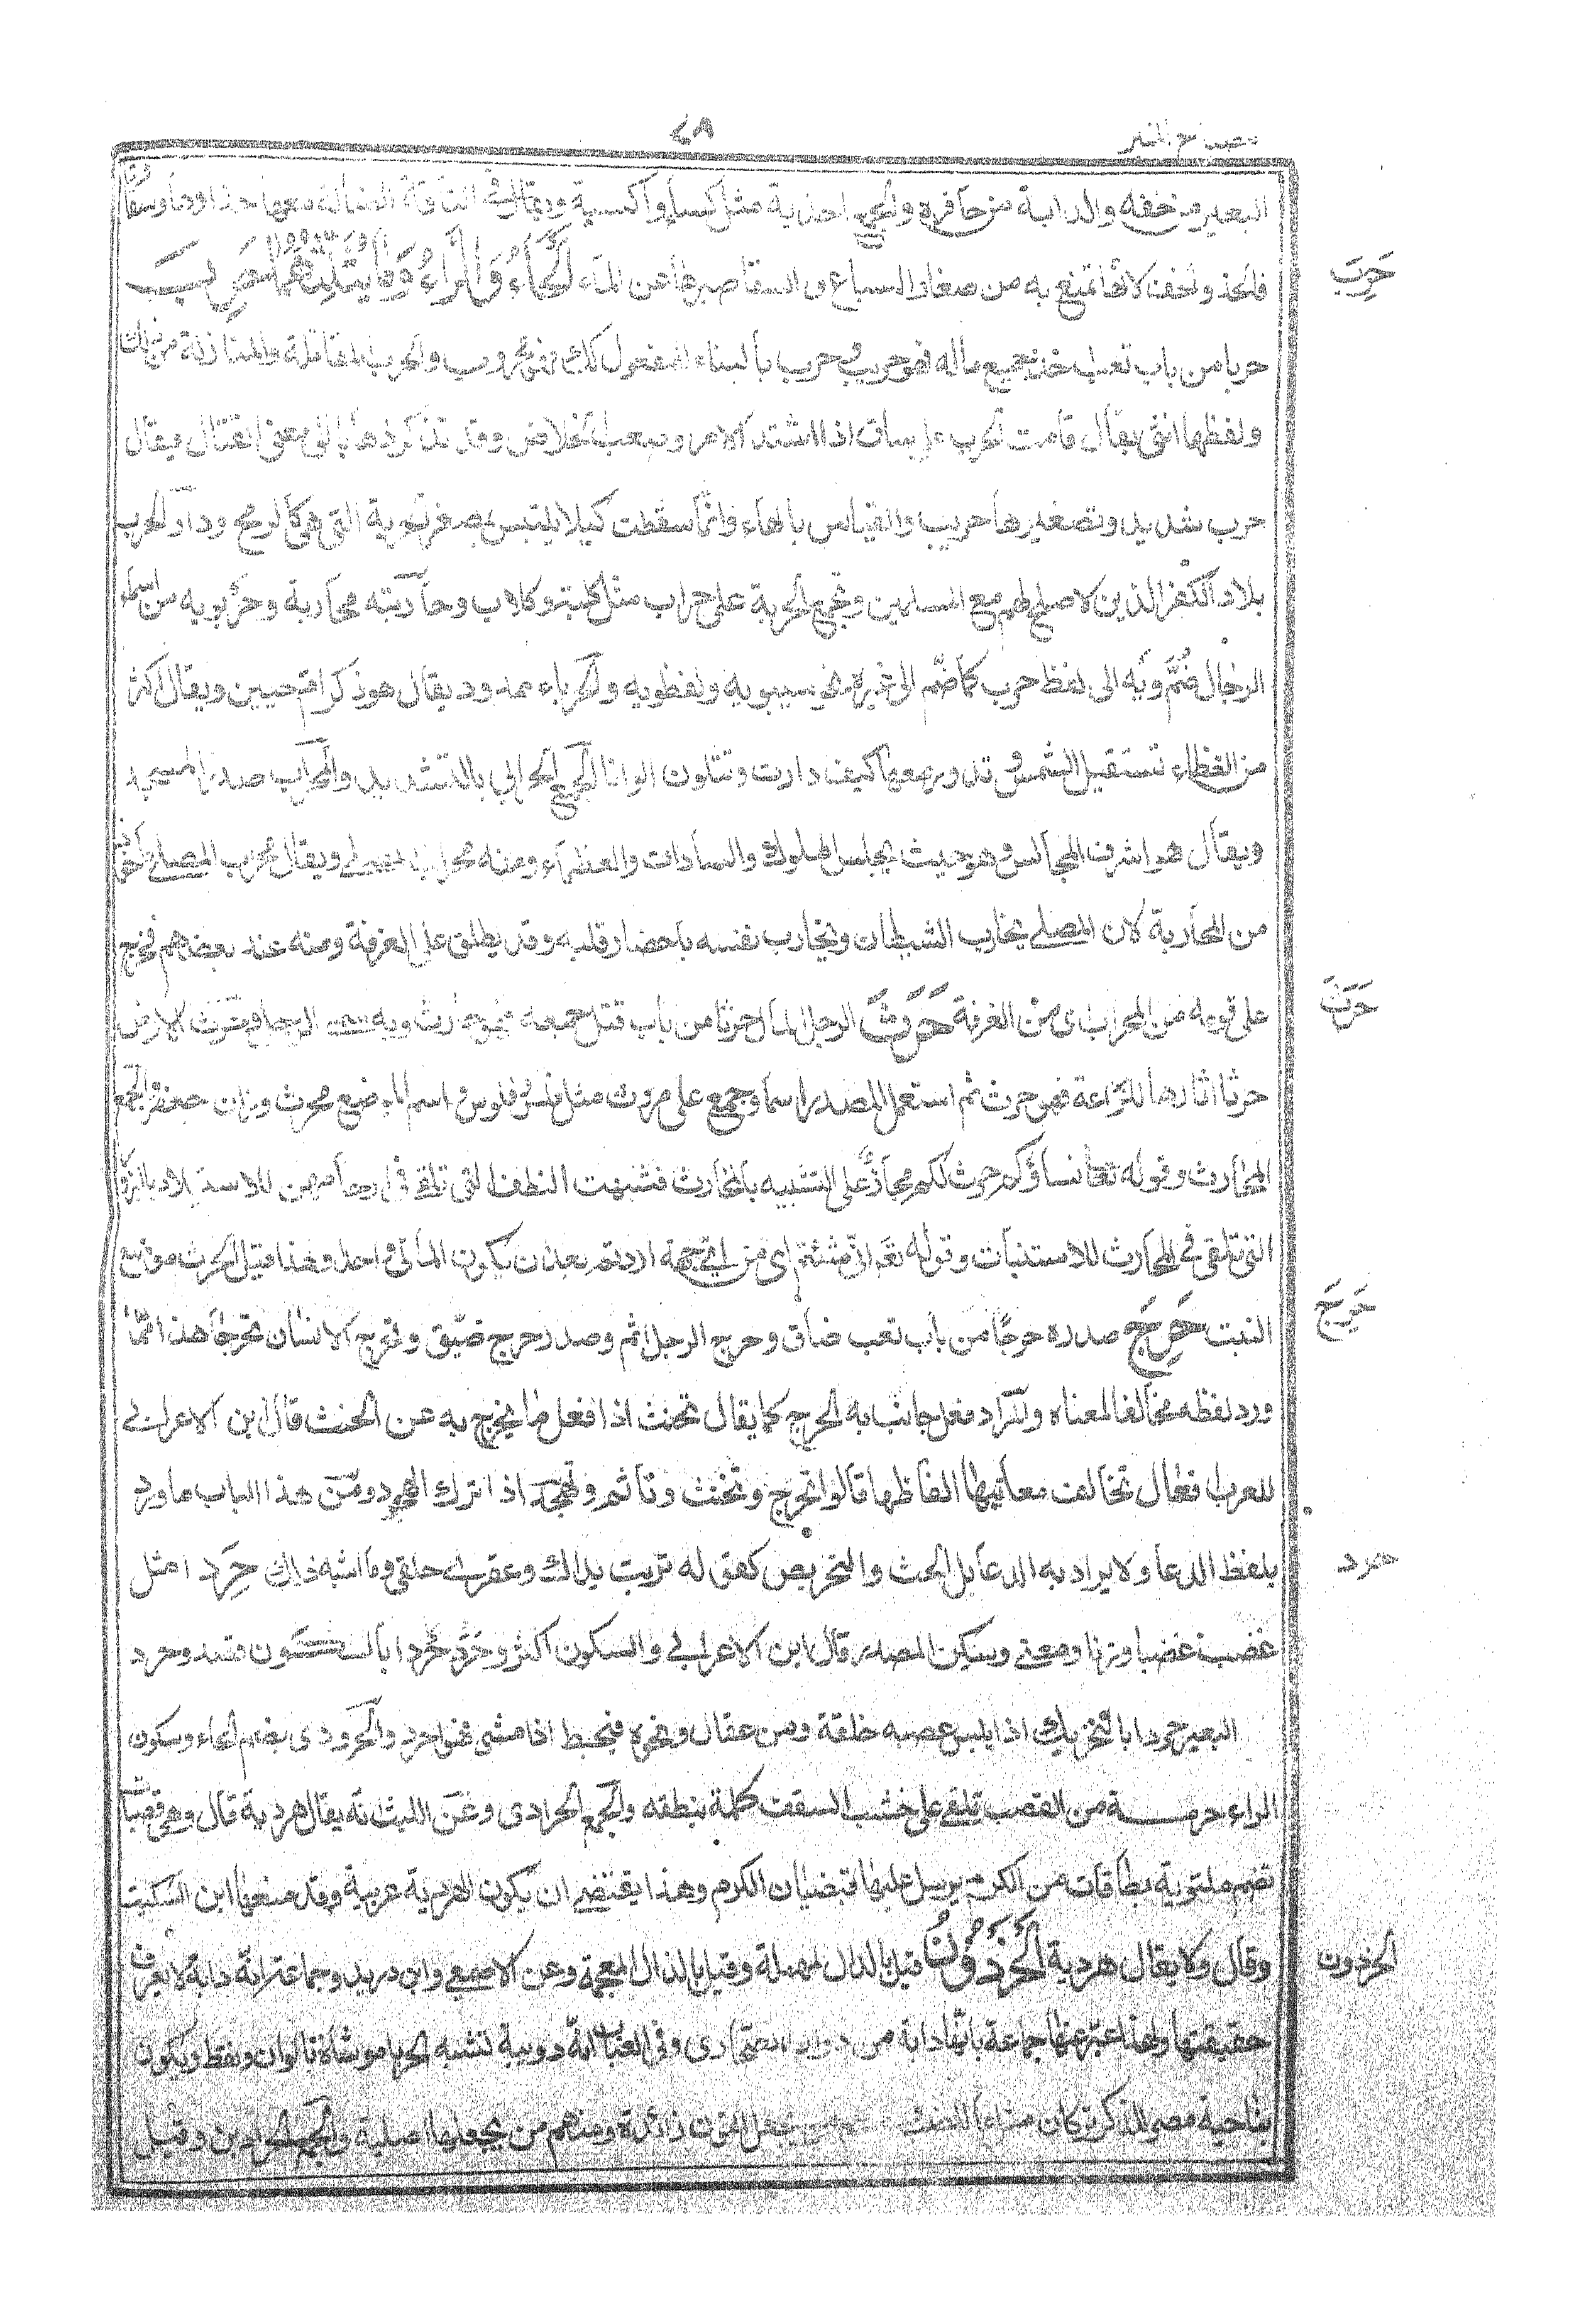 مصباح المنير
٤٨
البعير من خفه والدابة من حافره والجمع احذية مثل كساء واكسية وربما اللناقة الضالة معها حذاؤها وسقاؤها
فالحذ والخف لانها تمتنع به من صغار السباع والسقا صبرها عن الماء الحاء والراء وما يثلثهما حرب
حرب
حربا من باب تعب اخذ جميع ماله فهو حريب وحرب بالبناء للمفعول كذلك فهو محروب والحرب المقاتلة والمنازلة من ذلك
ولفظها انثى يقال قامت الحرب على ساق اذا اشتد الامر وصعب الخلاص وقد تذكر ذهابا الى معنى القتال فيقال
حرب شديد وتصغيرها حريب والقياس بالهاء وانما سقطت كيلا يلتبس بمصغر الحربة التى هى كالرمح ودار الحرب
بلاد الكفر الذين لا صلح لهم مع المسلمين وتجمع الحربة على حراب مثل كلبة وكلاب وحاربته محاربة وحربويه من اسماء
الرجال ضم ويه الى لفظ حرب كما ضم الى غيره نحو سيبويه ونفطويه والحرباء ممدود يقال هو ذكر ام حبين ويقال اكثر
من العظاء تستقبل الشمس وتدور معها كيف دارت وتتلون الوانا الجمع الحرابي بالتشديد والمحراب صدر المسجد
ويقال هو اشرف المجالس وهو حيث يجلس الملوك والسادات والعظماء ومنه محراب المصلي ويقال محراب المصلي اخذ
من المحاربة لان المصلي يحارب الشيطان ويحارب نفسه باحضار قلبه وقد يطلق على الغرفة ومنه عند بعضهم فخرج
على قومه من المحراب اى من الغرفة حرث الرجل المال حرثا من باب قتل جمعه فهو حارث وبه سمى الرجل وحرث الارض
حرث
حرثا اثارها للزراعة فهو حرث ثم استعمل المصدر اسما وجمع على حروث مثل فلس فلوس واسم الموضع محرث وزان جعفر والجمع
المحارث وقوله تعا نساؤكم حرث لكم مجاز على التشبيه بالمحارث فشبهت النطف التى تلقى فى ارحامهن للاستيلاد بالبزور
التى تلقى في المحارث للاستنبات وقوله تعم انى شئتم اى من اي جهة اردتم بعد ان يكون المأتى واحدا ولهذا قيل الحرث موضع
النبت حرج صدره حرجا من باب تعب ضاق وحرج الرجل اثم وصدر حرج ضيق وتحرج الانسان تحرجا هذا مما
حرج
ورد لفظه مخالفا لمعناه والمراد فعل جانب به الحرج كما يقال تحنث اذا فعل ما يخرج به عن الحنث قال ابن الاعرابي
للعرب افعال تخالف معانيها الفاظها قالوا تحرج وتحنث وتأثم وتهجد اذا ترك الهجود ومن هذا الباب ما ورد
بلفظ الدعا ولا يراد به الدعا بل الحث والتحريض كقوله تربت يداك وعقرى حلقى وما اشبه ذلك حرد ا مثل
حرد
غضب غضبا وزنا ومعنى وسكن المصدر قال ابن الاعرابي والسكون اكثر وحرد حردا بالسكون قصد وحرد
البعير حردا بالتحريك اذا يبس عصبه خلقة ومن عقال ونحوه فيخبط اذا مشى فهو احرد والحرودى بضم الحاء وسكون
الراء حزمة من القصب تلقى على خشب السقف كلمة نبطقه والجمع الحرادى وعن الليث انه يقال هردية قال وهى قصبات
تضم ملتوية بطاقات من الكرم يرسل عليها قضبان الكرم وهذا يقتضى ان يكون الهردية عربية وقد منعها ابن السكيت
وقال ولا يقال هردية الحرذون قيل بالدال المهملة وقيل بالذال المعجمة وعن الاصمعي وابن دريد وجماعة انه دابة لا يعرف
الحرذون
حقيقتها ولهذا عبر عنها جماعة بانها دابة من دواب الصحارى وفى العباب انه دويبة تشبه الحربا موشاة بالوان ونقط ويكون
بناحية مصر للذكر نزكان مثل ما للضب منهم من يجعل النون زائدة ومنهم من يجعلها اصلية والجمع الحراذين وقيل